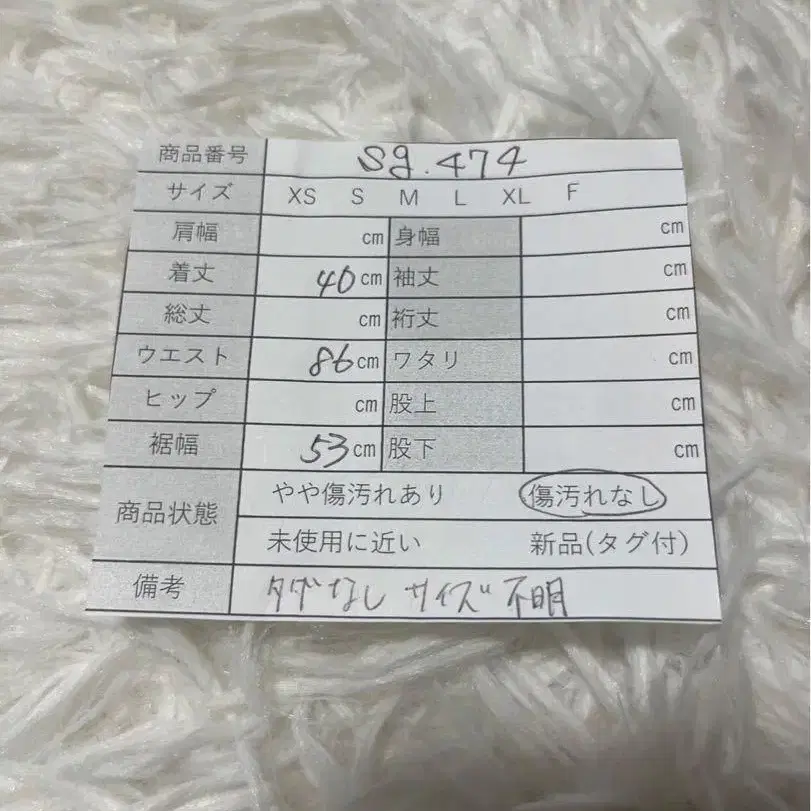 商品番号 sg.474
サイズ XS S M L XL F
肩幅 cm 身幅 cm
着丈 40cm 袖丈 cm
総丈 cm 裄丈 cm
ウエスト 86cm ワタリ cm
ヒップ cm 股上 cm
裾幅 53cm 股下 cm
商品状態 やや傷汚れあり 傷汚れなし
未使用に近い 新品(タグ付)
備考 タグなし サイズ不明